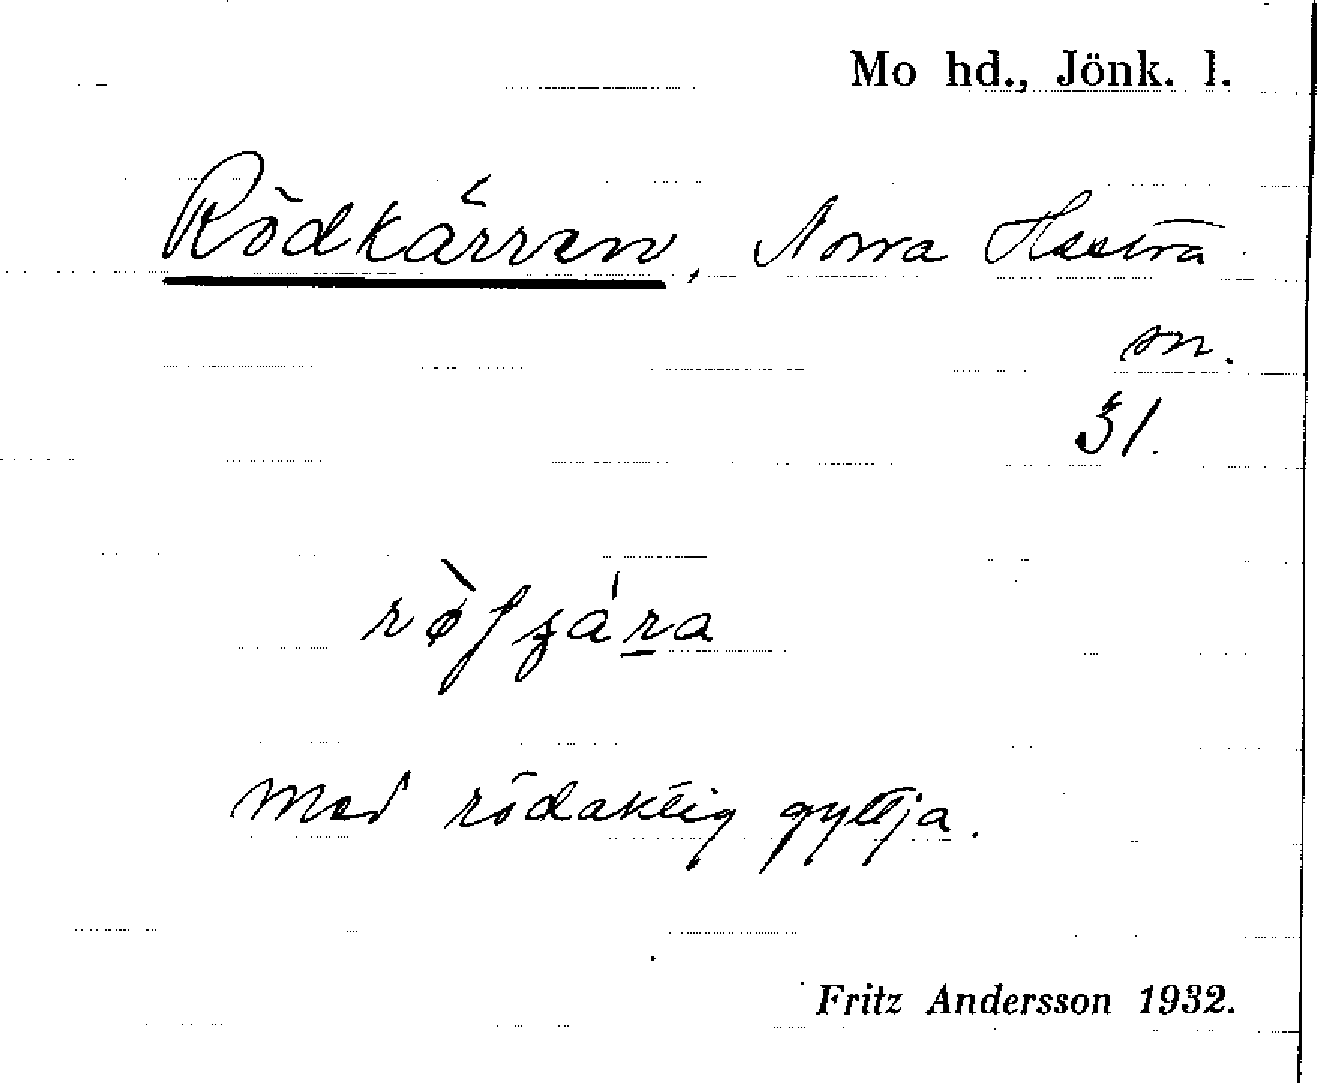 Mo hd., Jönk. l.
Rödkärren, Norra Hestra
sn.
31.
Med rödaktig gyttja.
Fritz Andersson 1932.